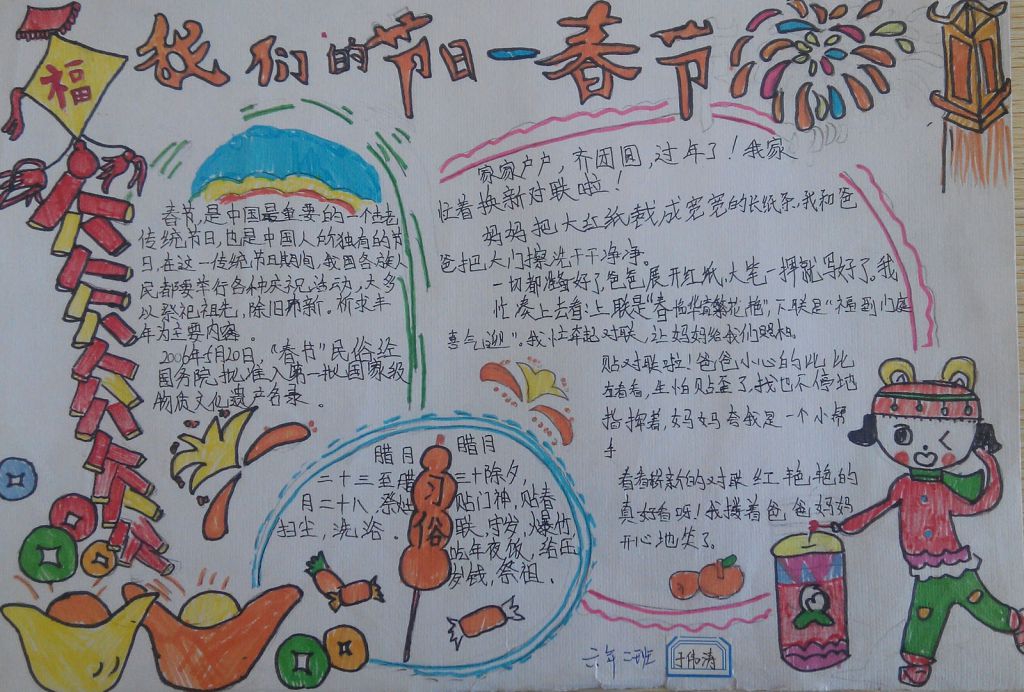 我们的节日-春节
福
春节,是中国最重要的一个古老
传统节日,也是中国人所独有的节
日,在这一传统节日期间,我国各族人
民都要举行各种庆祝活动,大多
以祭祀祖先,除旧布新。祈求丰
年为主要内容。
2006年5月20日,“春节”民俗经
国务院批准入第一批国家级
物质文化遗产名录。
家家户户,齐团圆,过年了!我家
忙着换新对联啦!
妈妈把大红纸裁成宽宽的长纸条,我和爸
爸把大门擦洗干干净净。
一切都准备好了,爸爸展开红纸,大笔一挥就写好了。我
忙凑上去看:上联是“春怡华宜繁花艳”,下联是“福到门庭
喜气迎”。我忙牵起对联,让妈妈给我们照相。
贴对联啦!爸爸小心的比比
左看看,生怕贴歪了,我也不停地
指挥着,妈妈夸我是一个小帮
手
看看新新的对联红艳艳的
真好看呀!我搂着爸爸妈妈
开心地笑了。
腊月
二十三至腊
月二十八,祭灶
扫尘,洗浴。
习俗
腊月
三十除夕,
贴门神,贴春
联,守岁,爆竹,
吃年夜饭,给压
岁钱,祭祖.
六年二班
于伟涛